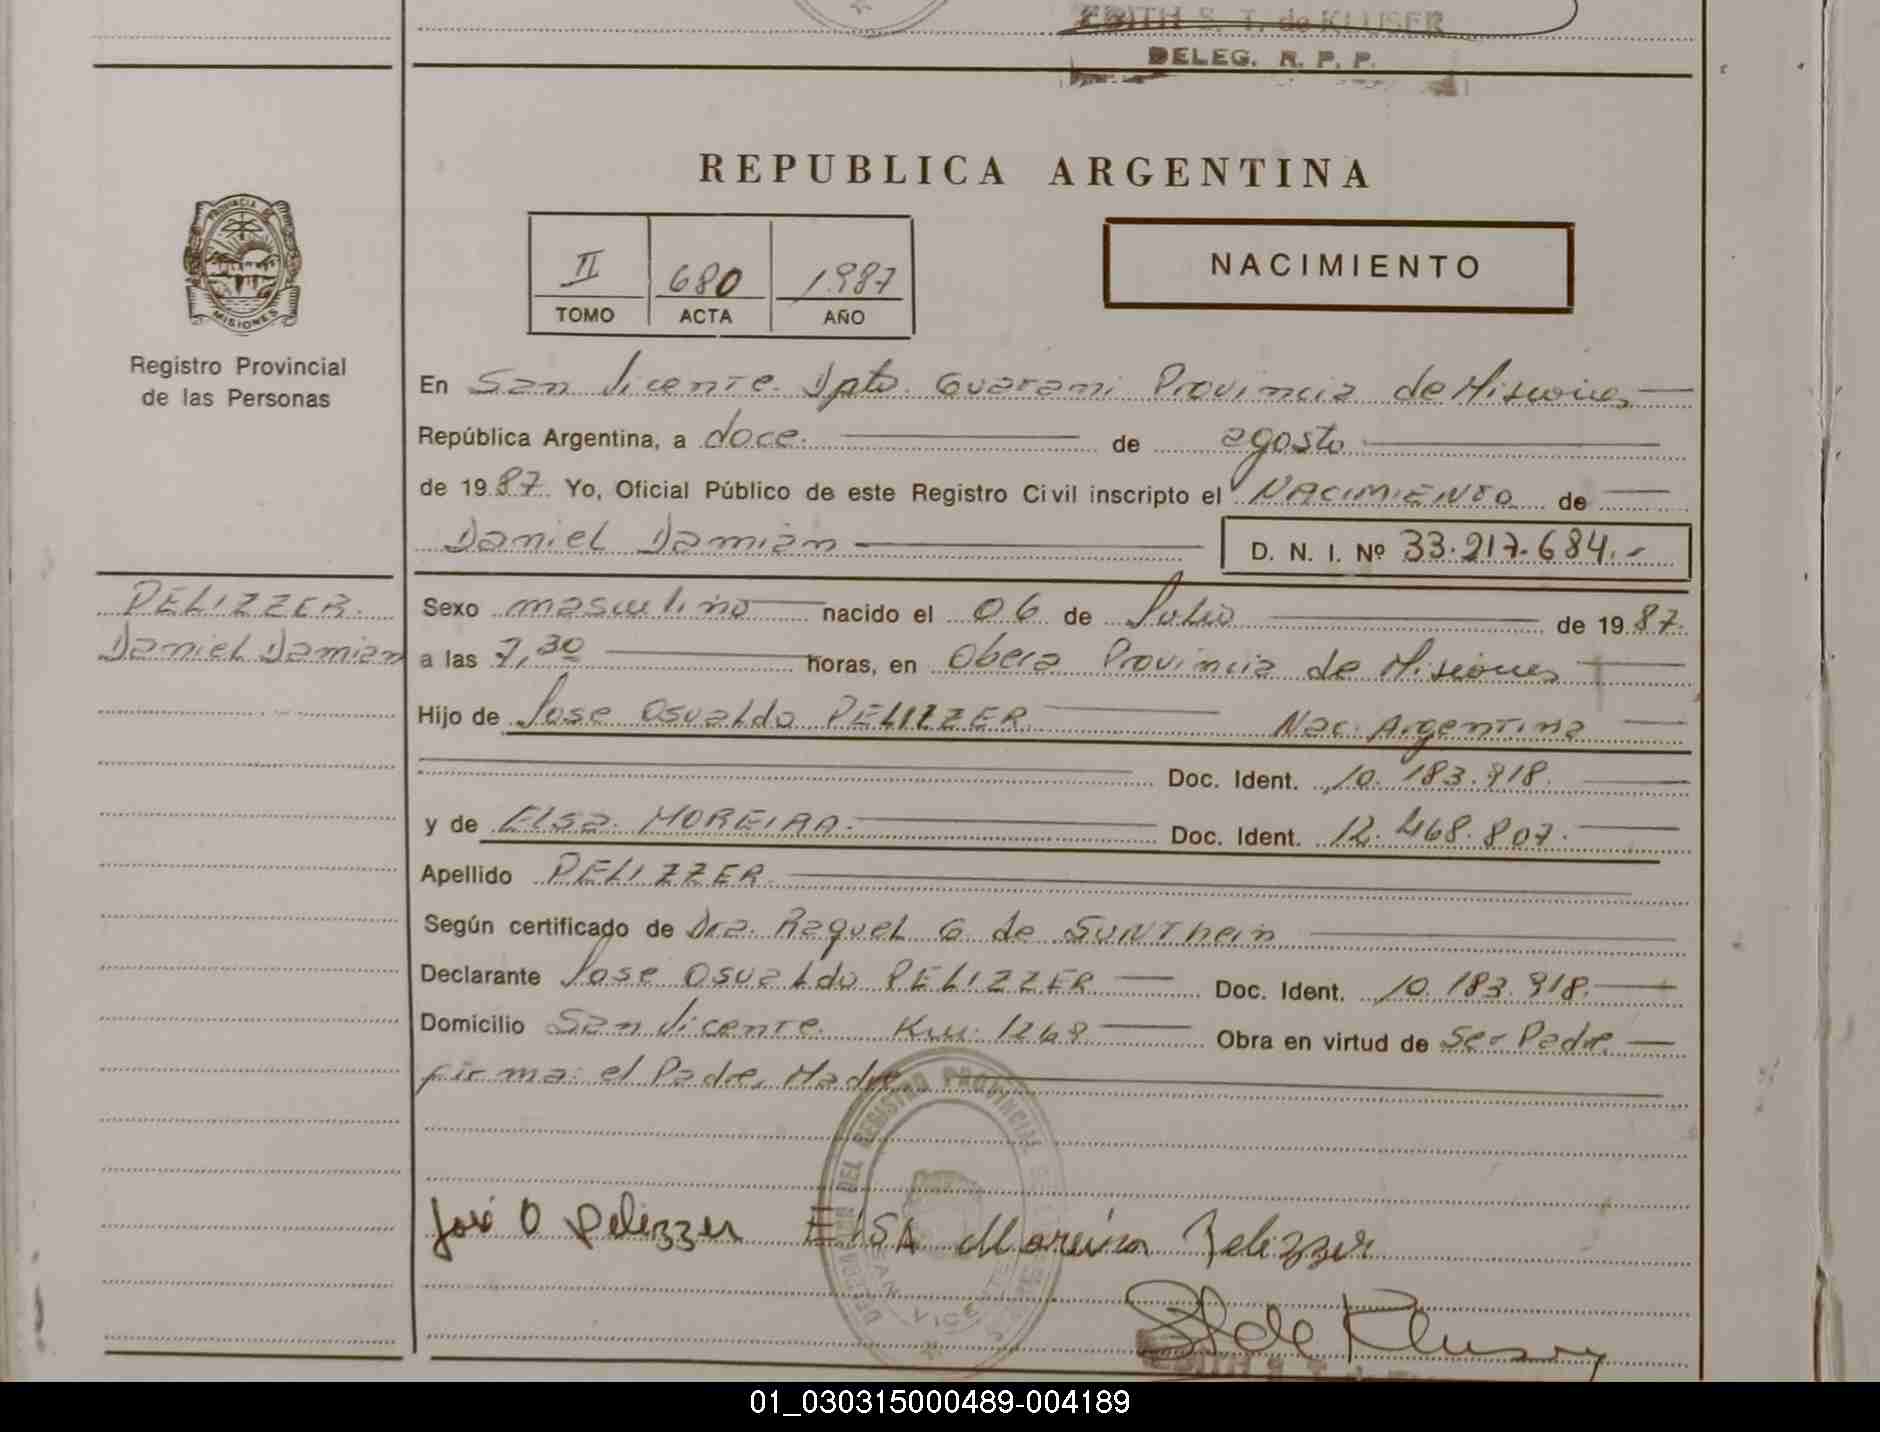 EDITH S. T. de KLUSER
DELEG. R. P. P.
REPUBLICA ARGENTINA
PROVINCIA DE
MISIONES
Registro Provincial
de las Personas
II 680 1987
TOMO ACTA AÑO
NACIMIENTO
En San Vicente. Dpto. Guarami Provincia de Misiones
República Argentina, a doce. de agosto
de 1987. Yo, Oficial Público de este Registro Civil inscripto el NACIMIENTO de
Daniel Damián D. N. I. Nº 33.217.684.-
PELIZZER.
Daniel Damian
Sexo masculino nacido el 06 de Julio de 1987.
a las 7,30 horas, en Obera Provincia de Misiones
Hijo de Jose Osvaldo PELIZZER Nac. Argentina
Doc. Ident. 10.183.918.
y de Elsa. MOREIRA. Doc. Ident. 12.468.807.
Apellido PELIZZER
Según certificado de Dra. Raquel G de
Declarante Jose Osvaldo PELIZZER Doc. Ident. 10.183.918.
Domicilio San Vicente. Km. 1268 Obra en virtud de Ser Padre
firma: el Padre, Madre
DEL REGISTRO PROVINCIAL
José O Pelizzer ElSA Moreira Pelizzer
SAN VICENTE
S T de Kluser
EDITH S. T. de
01_030315000489-004189